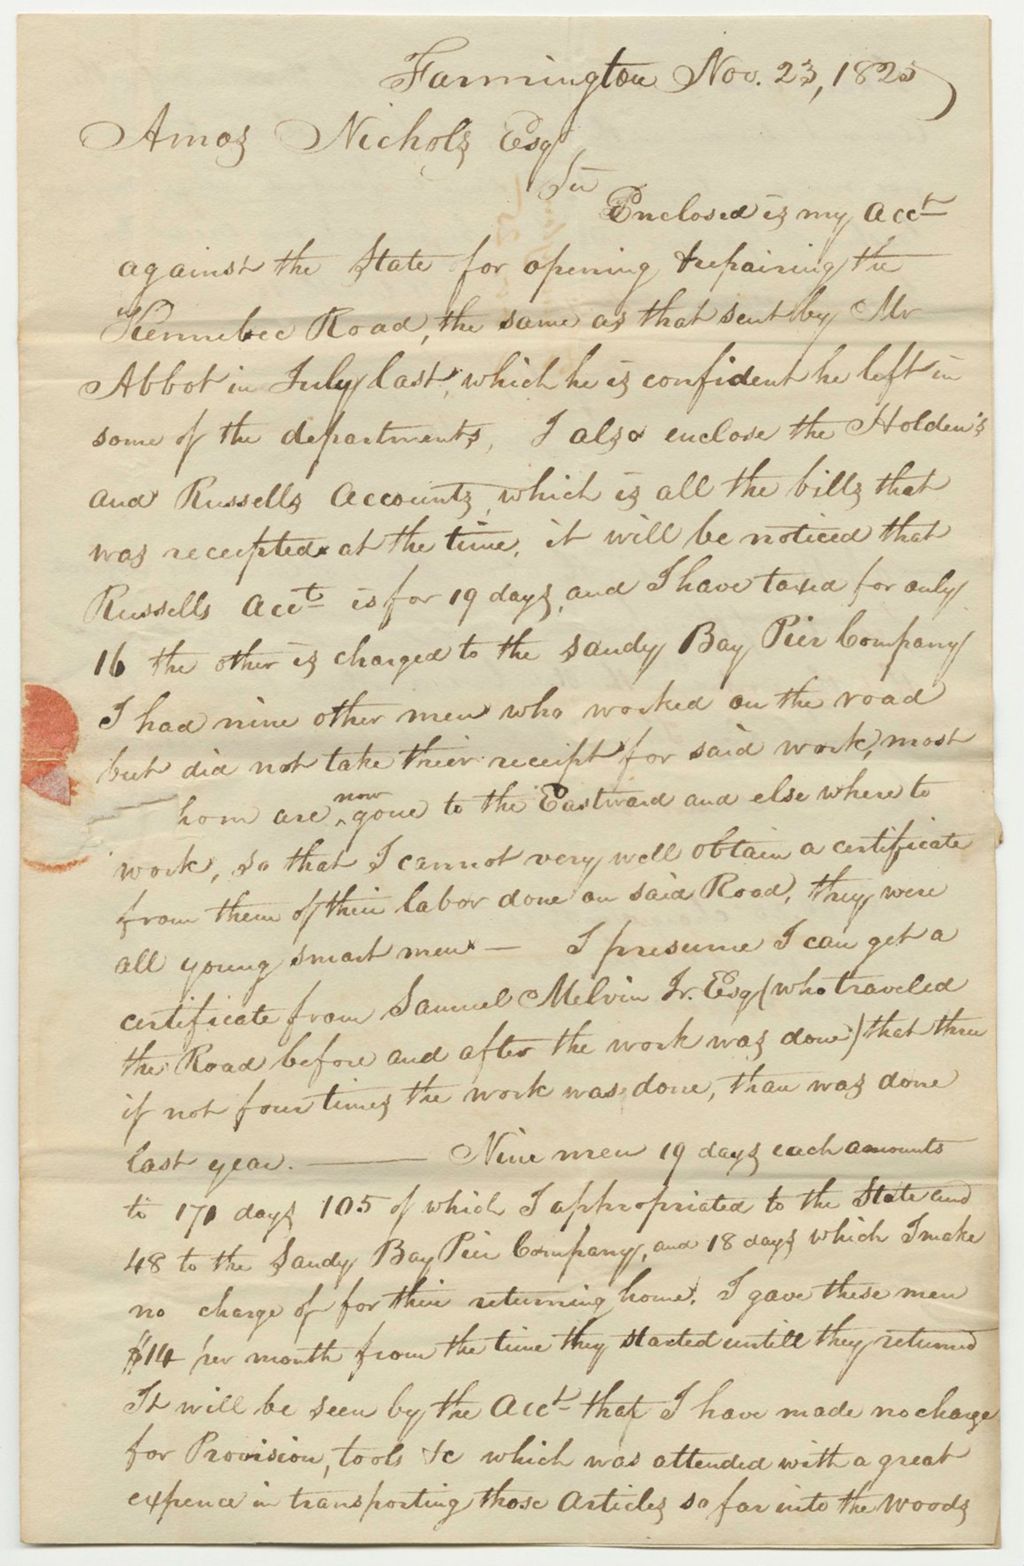 Farmington Nov. 23, 1825
Amos Nichols Esqr
Sir
Enclosed is my Acct
against the State for opening & repairing the
Kennebec Road, the same as that sent by Mr
Abbot in July last, which he is confident he left in
some of the departments, I also enclose the Holden's
and Russells Accounts, which is all the bills that
was receipted at the time, it will be noticed that
Russells Acct is for 19 days, and I have taxed for only
16 the other is charged to the Sandy Bay Pier Company
I had nine other men who worked on the road
but did not take their receipt for said work, most
hom are now gone to the Eastward and else where to
work, so that I cannot very well obtain a certificate
from them of their labor done on said Road, they were
all young smart men — I presume I can get a
certificate from Samuel Melvin Jr. Esq (who traveled
the Road before and after the work was done) that three
if not four times the work was done, than was done
last year. —— Nine men 19 days each amounts
to 171 days 105 of which I appropriated to the State and
48 to the Sandy Bay Pier Company, and 18 days which I make
no charge of for their returning home. I gave these men
$14 per month from the time they started untill they returned
It will be seen by the Acct that I have made no charge
for Provision, tools &c which was attended with a great
expence in transporting those Articles so far into the woods